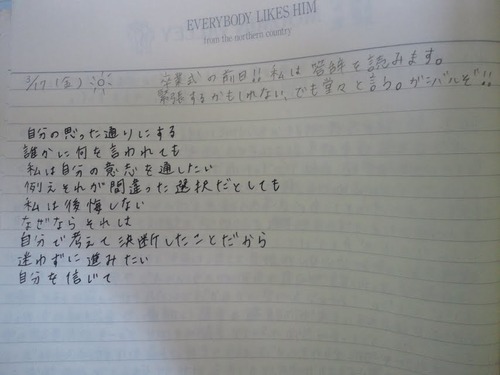 EVERYBODY LIKES HIM
from the northern country
3/17(金) 卒業式の前日!! 私は答辞を読みます。
緊張するかもしれない、でも堂々と言う。ガンバルぞ!!
自分の思った通りにする
誰かに何を言われても
私は自分の意志を通したい
例えそれが間違った選択だとしても
私は後悔しない
なぜならそれは
自分で考えて決断したことだから
迷わずに進みたい
自分を信じて